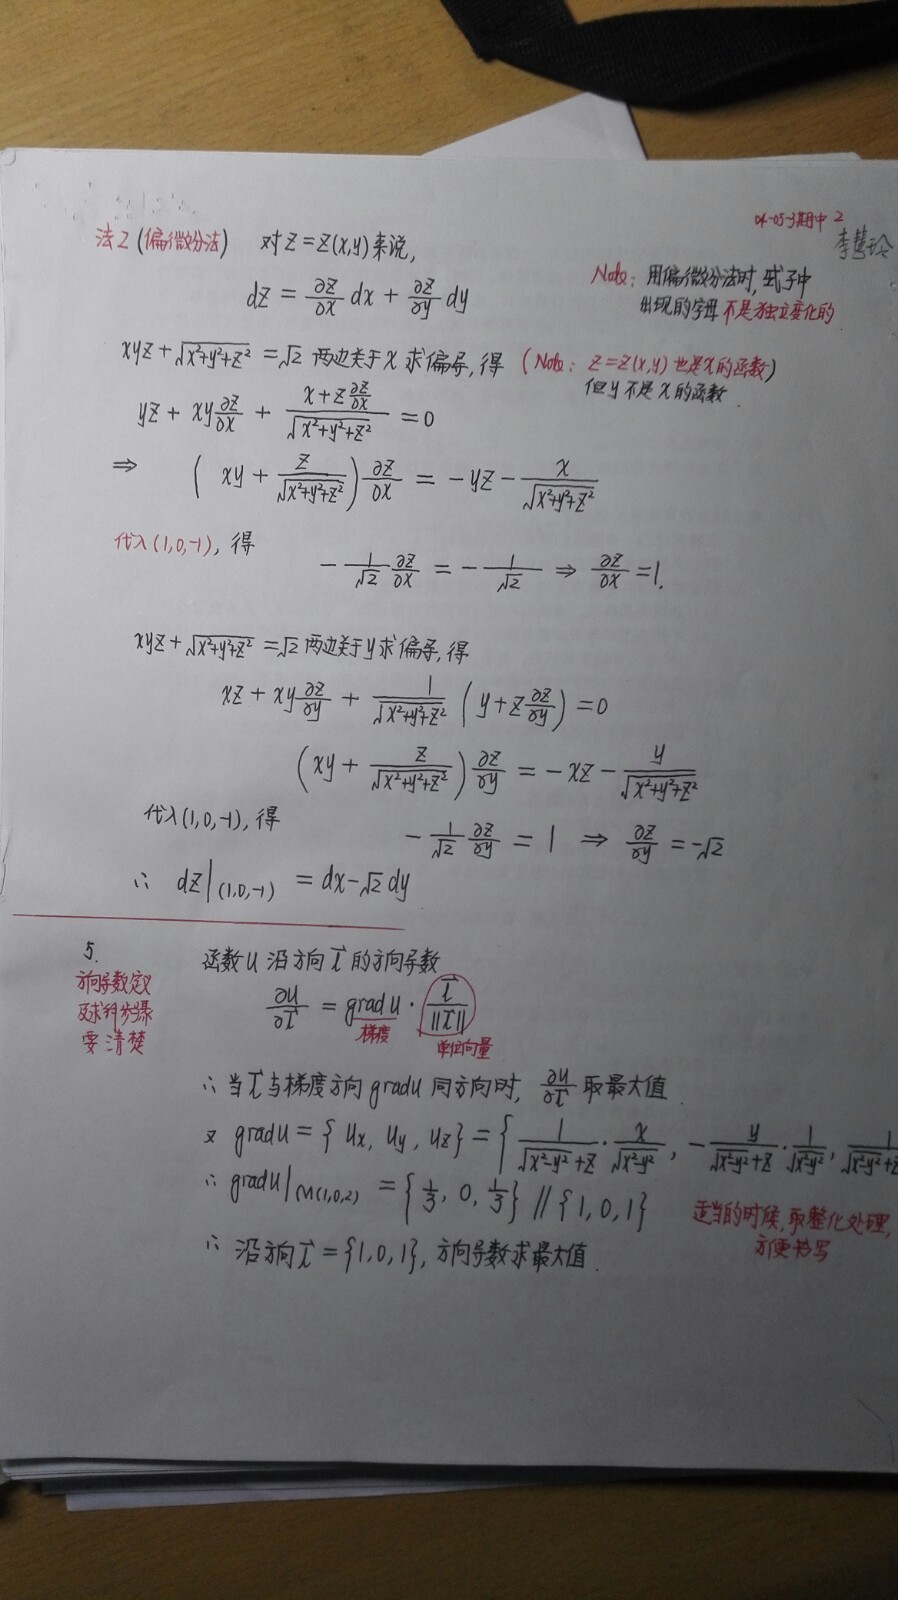 04-05-3期中 2
李慧玲
法2 (偏微分法) 对z=z(x,y)来说,
Note: 用偏微分法时, 式子中
出现的字母不是独立变化的
dz = ∂z/∂x dx + ∂z/∂y dy
xyz+√(x²+y²+z²) =√2 两边关于x求偏导, 得 (Note: z=z(x,y)也是x的函数)
但y不是x的函数
yz + xy ∂z/∂x + (x+z ∂z/∂x)/√(x²+y²+z²) =0
⇒ (xy + z/√(x²+y²+z²)) ∂z/∂x = -yz - x/√(x²+y²+z²)
代入(1,0,-1), 得
-1/√2 ∂z/∂x = -1/√2 ⇒ ∂z/∂x =1.
xyz+√(x²+y²+z²) =√2 两边关于y求偏导, 得
xz+xy ∂z/∂y + 1/√(x²+y²+z²) (y+z ∂z/∂y) =0
(xy + z/√(x²+y²+z²)) ∂z/∂y = -xz - y/√(x²+y²+z²)
代入(1,0,-1), 得
-1/√2 ∂z/∂y = 1 ⇒ ∂z/∂y =-√2
∴ dz|(1,0,-1) = dx-√2 dy
5.
方向导数定义
及求解步骤
要清楚
函数u沿方向l⃗的方向导数
∂u/∂l⃗ = gradu · l⃗/||l⃗||
梯度 单位向量
∴当l⃗与梯度方向gradu同方向时, ∂u/∂l⃗ 取最大值
又 gradu={ux, uy, uz}={1/(√(x²-y²)+z) · x/√(x²-y²), -y/(√(x²-y²)+z) · 1/√(x²-y²), 1/(√(x²-y²)+z
∴ gradu|M(1,0,2) = {1/3, 0, 1/3} // {1,0,1}
适当的时候, 取整化处理,
方便书写
∴ 沿方向l⃗={1,0,1}, 方向导数求最大值.